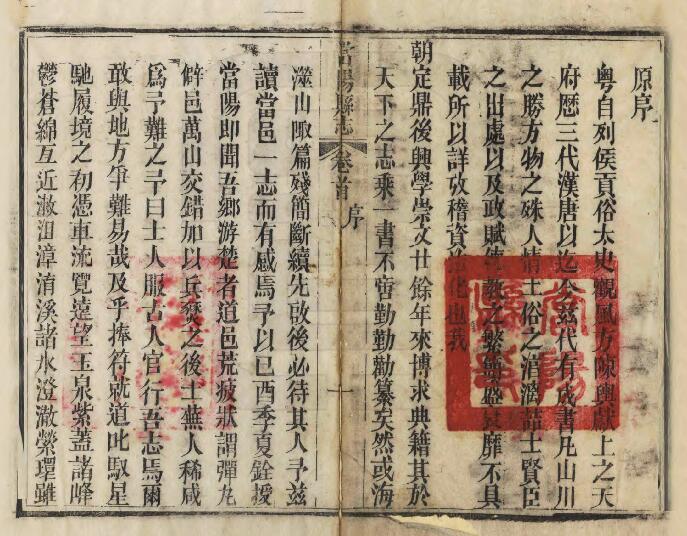 原序
粤自列侯貢俗太史觀風方陳輿獻上之天
府歷三代漢唐以迄今茲代有成書凡山川
之勝方物之殊人情土俗之淯漓喆士賢臣
之出處以及政賦之繁靡不具
載所以詳攷稽資化也我
朝定鼎後興學崇文廿餘年來博求典籍其於
天下之志乘一書不啻勤勤勸纂矣然或海
當陽縣志 卷首 序
澨山陬篇殘簡斷續先啟後必待其人予茲
讀當邑一志而有感焉予以已酉季夏銓授
當陽即聞吾鄉游楚者道邑荒疲狀謂彈丸
僻邑萬山交錯加以兵燹之後土蕪人稀咸
爲予難之予曰士人服古入官行吾志焉爾
敢與地方爭難易哉及乎捧符就道叱馭星
馳履境之初憑車流覽遠望玉泉紫蓋諸峰
鬱蒼綿亙近漵沮漳淯溪諸水澄澈縈環雖